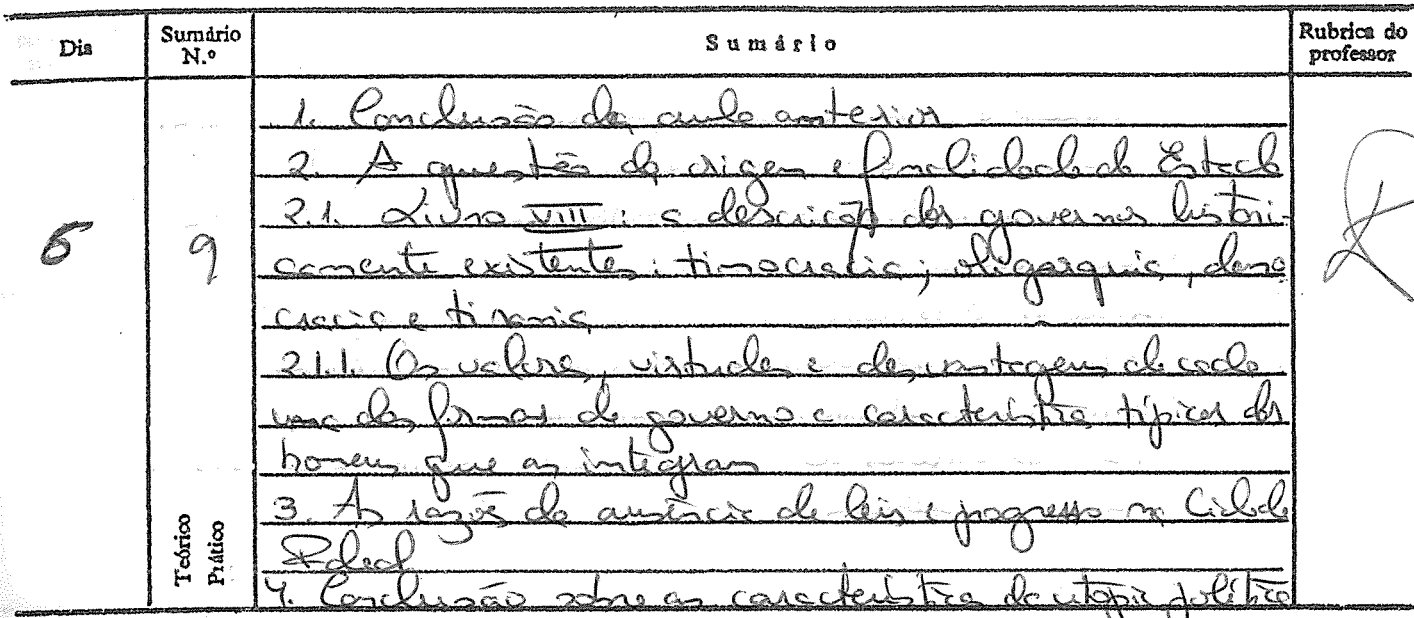 Dia Sumário N.º Sumário Rubrica do professor
1. Conclusão da aula anterior
2. A questão da origem e finalidade do Estado
2.1. Livro VIII: a descrição dos governos histori-
camente existentes: timocracia; oligarquia, demo
cracia e tirania
2.1.1. Os valores, virtudes e desvantagens de cada
uma das formas de governo e características típicas dos
homens que as integram
3. As razões da ausência de leis e progresso na Cidade
Ideal
4. Conclusão sobre as características da utopia política
5 9
Teórico
Prático